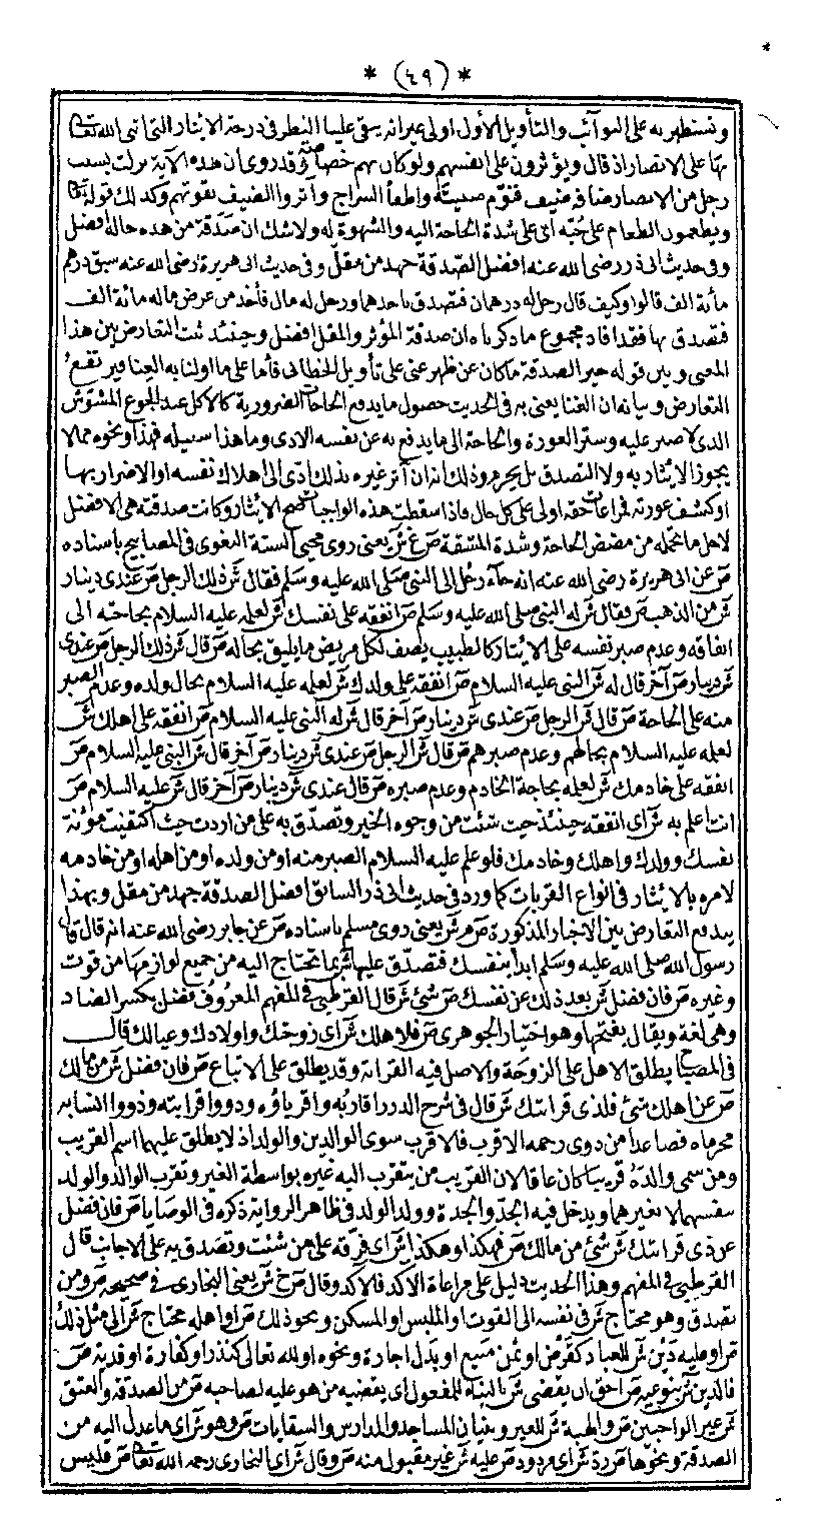 * (٤٩) *
ونستظهر به على النوائب والتأويل الأول اولى غير انه يبقى علينا النظر في درجة الايثار التي اثنى الله تعالى
بها على الانصار اذ قال ويؤثرون على انفسهم ولو كان بهم خصاصة وقد روى ان هذه الآية نزلت بسبب
رجل من الانصار ضافه ضيف فنوم صبيته واطفأ السراج وآثروا الضيف بقوتهم وكذلك قوله تعالى
ويطعمون الطعام على حبه اى على شدة الحاجة اليه والشهوة له ولاشك ان صدقة من هذه حاله افضل
وفى حديث ابى ذر رضى الله عنه افضل الصدقة جهد من مقل وفى حديث ابى هريرة رضى الله عنه سبق درهم
مائة الف قالوا وكيف قال رجل له درهمان فتصدق باحدهما ورجل له مال فأخذ من عرض ماله مائة الف
فتصدق بها فقد افاد مجموع ما ذكرناه ان صدقة المؤثر والمقل افضل وحينئذ ثبت التعارض بين هذا
المعنى وبين قوله خير الصدقة ما كان عن ظهر غنى على تأويل الخطابى فأما على ما اولنا به الغنا فيرتفع
التعارض وبيانه ان الغنا يعنى به فى الحديث حصول ما يدفع الحاجات الضرورية كالاكل عند الجوع المشوش
الذى لا صبر عليه وستر العورة والحاجة الى ما يدفع به عن نفسه الاذى وما هذا سبيله فهذا ونحوه مما لا
يجوز الايثار به ولا التصدق بل يحرم وذلك انه ان آثر غيره بذلك ادى الى اهلاك نفسه او الاضرار بها
او كشف عورته فمراعاة حقه اولى على كل حال فاذا سقطت هذه الواجبات صح الايثار وكانت صدقته هى الافضل
لاجل ما يحمله من مضض الحاجة وشدة المشقة ص غ ش يعنى روى محيى السنة البغوى فى المصابيح باسناده
ص عن ابى هريرة رضى الله عنه انه جاء رجل الى النبى صلى الله عليه وسلم فقال ش ذلك الرجل ص عندى دينار
ش من الذهب ص فقال ش له النبى صلى الله عليه وسلم ص انفقه على نفسك ش لعلمه عليه السلام بحاجته الى
انفاقه وعدم صبر نفسه على الايثار كالطبيب يصف لكل مريض ما يليق بحاله ص قال ش ذلك الرجل ص عندى
ش دينار ص آخر قال له ش النبى عليه السلام ص انفقه على ولدك ش لعلمه عليه السلام بحال ولده وعدم الصبر
منه على الحاجة ص قال ش الرجل ص عندى ش دينار ص آخر قال ش له النبى عليه السلام ص انفقه على اهلك ش
لعلمه عليه السلام بحالهم وعدم صبرهم ص قال ش الرجل ص عندى ش دينار ص آخر قال ش النبى عليه السلام ص
انفقه على خادمك ش لعلمه بحاجة الخادم وعدم صبره ص قال عندى ش دينار ص آخر قال ش عليه السلام ص
انت اعلم به ش اى انفقه حينئذ حيث شئت من وجوه الخير وتصدق به على من اردت حيث اكتفيت مؤنة
نفسك وولدك واهلك وخادمك فلو علم عليه السلام الصبر منه او من ولده او من اهله او من خادمه
لامره بالايثار فى انواع القربات كما ورد فى حديث ابى ذر السابق افضل الصدقة جهد من مقل وبهذا
يندفع التعارض بين الاخبار المذكورة ص م ش يعنى روى مسلم باسناده ص عن جابر رضى الله عنه انه قال قال
رسول الله صلى الله عليه وسلم ابدأ بنفسك فتصدق عليها ش بما تحتاج اليه من جميع لوازمها من قوت
وغيره ص فان فضل ش بعد ذلك عن نفسك ص شئ ش قال القرطبى فى المفهم المعروف فضل بكسر الضاد
وهى لغة ويقال بفتحها وهو اختيار الجوهرى ص فلاهلك ش اى زوجتك واولادك وعيالك قال
فى المصباح يطلق الاهل على الزوجة والاصل فيه القرابة وقد يطلق على الاتباع ص فان فضل ش من مالك
ص عن اهلك شئ فلذى قرابتك ش قال فى شرح الدرر اقاربه واقرباؤه وذووا قرابته وذووا انسابه
محرماه فصاعدا من ذوى رحمه الاقرب فالاقرب سوى الوالدين والولد اذ لا يطلق عليهما اسم القريب
ومن سمى والده قريبا كان عاقا لان القريب من يتقرب اليه غيره بواسطة الغير وتقرب الوالد والولد
بنفسهما لا بغيرهما ويدخل فيه الجد والجدة وولد الولد فى ظاهر الرواية ذكره فى الوصايا ص فان فضل
عن ذى قرابتك ش شئ من مالك ص فهكذا وهكذا ش اى فرقه على من شئت وتصدق به على الاجانب قال
القرطبى فى المفهم وهذا الحديث دليل على مراعاة الاكد فالاكد وقال ص خ ش يعنى البخارى فى صحيحه ص ومن
تصدق وهو محتاج ش فى نفسه الى القوت او الملبس او المسكن ونحو ذلك ص او اهله محتاج ش الى مثل ذلك
ص او عليه دين ش للعباد كقرض او ثمن مبيع او بدل اجارة ونحوه او لله تعالى كنذر او كفارة او فدية ص
فالدين ش بنوعيه ص احق ان يقضى ش بالبناء للمفعول اى يقضيه من هو عليه لصاحبه ص من الصدقة والعتق
ش غير الواجبين ص والهبة ش للغير وبنيان المساجد والمدارس والسقايات ص وهو ش اى ما عدل اليه من
الصدقة ونحوها ص رد ش اى مردود ص عليه ش غير مقبول منه ص وقال ش اى البخارى رحمه الله تعالى ص فليس